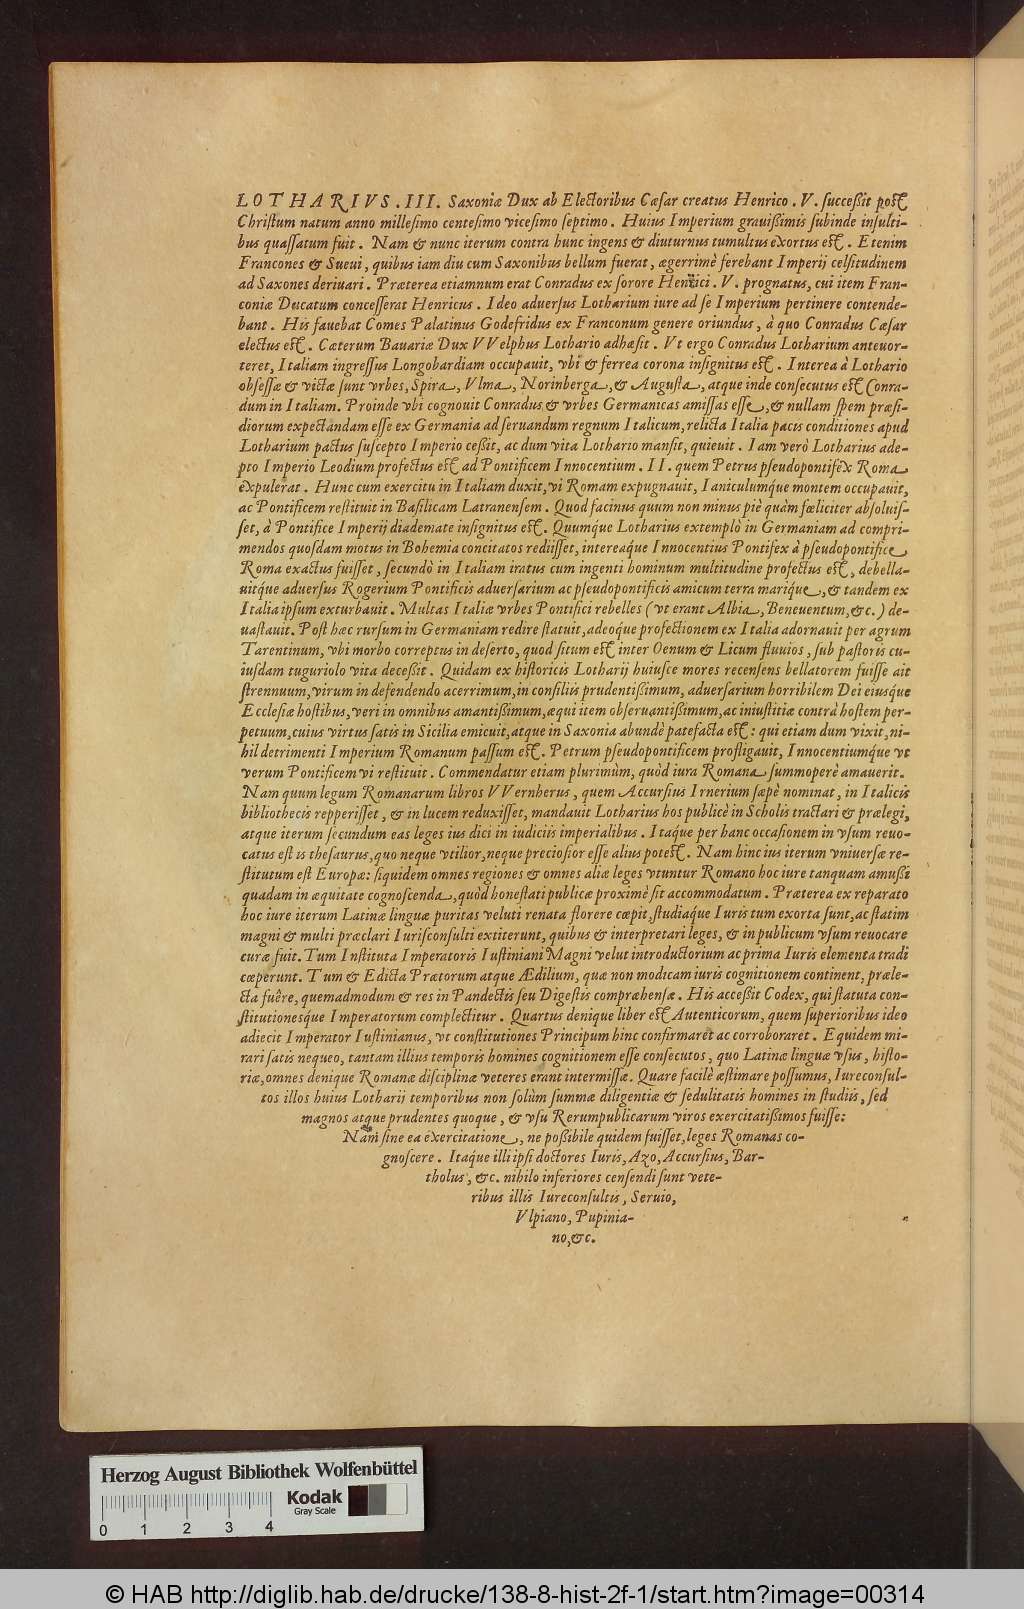 LOTHARIVS.III. Saxoniæ Dux ab Electoribus Cæsar creatus Henrico. V. succeßit post
Christum natum anno millesimo centesimo vicesimo septimo. Huius Imperium grauißimis subinde insulti-
bus quassatum fuit. Nam & nunc iterum contra hunc ingens & diuturnus tumultus exortus est. Etenim
Francones & Sueui, quibus iam diu cum Saxonibus bellum fuerat, ægerrimè ferebant Imperij celsitudinem
ad Saxones deriuari. Præterea etiamnum erat Conradus ex sorore Henrici. V. prognatus, cui item Fran-
coniæ Ducatum concesserat Henricus. Ideo aduersus Lotharium iure ad se Imperium pertinere contende-
bant. His fauebat Comes Palatinus Godefridus ex Franconum genere oriundus, à quo Conradus Cæsar
electus est. Cæterum Bauariæ Dux VVelphus Lothario adhæsit. Vt ergo Conradus Lotharium anteuor-
teret, Italiam ingressus Longobardiam occupauit, vbi & ferrea corona insignitus est. Interea à Lothario
obsessæ & victæ sunt vrbes, Spira, Vlma, Norinberga, & Augusta, atque inde consecutus est Conra-
dum in Italiam. Proinde vbi cognouit Conradus & vrbes Germanicas amissas esse, & nullam spem præsi-
diorum expectandam esse ex Germania ad seruandum regnum Italicum, relicta Italia pacis conditiones apud
Lotharium pactus suscepto Imperio ceßit, ac dum vita Lothario mansit, quieuit. Iam verò Lotharius ade-
pto Imperio Leodium profectus est ad Pontificem Innocentium. II. quem Petrus pseudopontifex Roma
expulerat. Hunc cum exercitu in Italiam duxit, vi Romam expugnauit, Ianiculumque montem occupauit,
ac Pontificem restituit in Basilicam Latranensem. Quod facinus quum non minus piè quàm fœliciter absoluis-
set, à Pontifice Imperij diademate insignitus est. Quumque Lotharius extemplò in Germaniam ad compri-
mendos quosdam motus in Bohemia concitatos rediisset, intereaque Innocentius Pontifex à pseudopontifice
Roma exactus fuisset, secundò in Italiam iratus cum ingenti hominum multitudine profectus est, debella-
uitque aduersus Rogerium Pontificis aduersarium ac pseudopontificis amicum terra marique, & tandem ex
Italia ipsum exturbauit. Multas Italiæ vrbes Pontifici rebelles (vt erant Albia, Beneuentum, &c.) de-
uastauit. Post hæc rursum in Germaniam redire statuit, adeoque profectionem ex Italia adornauit per agrum
Tarentinum, vbi morbo correptus in deserto, quod situm est inter Oenum & Licum fluuios, sub pastoris cu-
iusdam tuguriolo vita deceßit. Quidam ex historicis Lotharij huiusce mores recensens bellatorem fuisse ait
strennuum, virum in defendendo acerrimum, in consiliis prudentißimum, aduersarium horribilem Dei eiusque
Ecclesiæ hostibus, veri in omnibus amantißimum, æqui item obseruantißimum, ac iniustitiæ contrà hostem per-
petuum, cuius virtus satis in Sicilia emicuit, atque in Saxonia abundè patefacta est: qui etiam dum vixit, ni-
hil detrimenti Imperium Romanum passum est. Petrum pseudopontificem profligauit, Innocentiumque vt
verum Pontificem vi restituit. Commendatur etiam plurimùm, quòd iura Romana summoperè amauerit.
Nam quum legum Romanarum libros VVernherus, quem Accursius Irnerium sæpè nominat, in Italicis
bibliothecis repperisset, & in lucem reduxisset, mandauit Lotharius hos publicè in Scholis tractari & prælegi,
atque iterum secundum eas leges ius dici in iudiciis imperialibus. Itaque per hanc occasionem in vsum reuo-
catus est is thesaurus, quo neque vtilior, neque preciosior esse alius potest. Nam hinc ius iterum vniuersæ re-
stitutum est Europæ: siquidem omnes regiones & omnes aliæ leges vtuntur Romano hoc iure tanquam amußi
quadam in æquitate cognoscenda, quòd honestati publicæ proximè sit accommodatum. Præterea ex reparato
hoc iure iterum Latinæ linguæ puritas veluti renata florere cœpit, studiaque Iuris tum exorta sunt, ac statim
magni & multi præclari Iurisconsulti extiterunt, quibus & interpretari leges, & in publicum vsum reuocare
curæ fuit. Tum Instituta Imperatoris Iustiniani Magni velut introductorium ac prima Iuris elementa tradi
cœperunt. Tum & Edicta Prætorum atque Ædilium, quæ non modicam iuris cognitionem continent, præle-
cta fuêre, quemadmodum & res in Pandectis seu Digestis compræhensæ. His acceßit Codex, qui statuta con-
stitutionesque Imperatorum complectitur. Quartus denique liber est Autenticorum, quem superioribus ideo
adiecit Imperator Iustinianus, vt constitutiones Principum hinc confirmaret ac corroboraret. Equidem mi-
rari satis nequeo, tantam illius temporis homines cognitionem esse consecutos, quo Latinæ linguæ vsus, histo-
riæ, omnes denique Romanæ disciplinæ veteres erant intermissæ. Quare facilè æstimare possumus, Iureconsul-
tos illos huius Lotharij temporibus non solùm summæ diligentiæ & sedulitatis homines in studiis, sed
magnos atque prudentes quoque, & vsu Rerumpublicarum viros exercitatißimos fuisse:
Nam sine ea exercitatione, ne poßibile quidem fuisset, leges Romanas co-
gnoscere. Itaque illi ipsi doctores Iuris, Azo, Accursius, Bar-
tholus, &c. nihilo inferiores censendi sunt vete-
ribus illis Iureconsultis, Seruio,
Vlpiano, Pupinia-
no, &c.
Herzog August Bibliothek Wolfenbüttel
Kodak
Gray Scale
0 1 2 3 4
© HAB http://diglib.hab.de/drucke/138-8-hist-2f-1/start.htm?image=00314